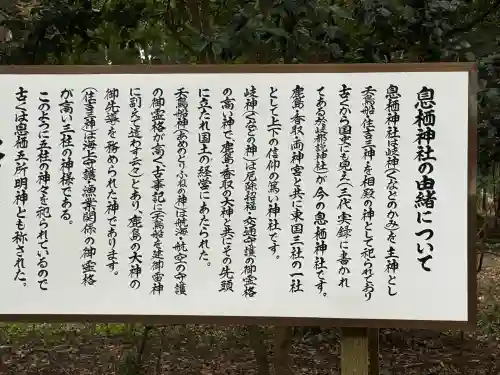 息栖神社の由緒について
息栖神社は岐神(くなどのかみ)を主神とし
天鳥船・住吉三神を相殿の神として祀られており
古くから国史にも見え(三代実録に書かれ
てある於岐都説神社)が今の息栖神社です。
鹿島・香取両神宮と共に東国三社の一社
として上下の信仰の篤い神社です。
岐神(くなどの神)は厄除招福・交通守護の御霊格
の高い神で、鹿島・香取の大神と共にその先頭
に立たれ国土の経営にあたられた。
天鳥船神(あめのとりふねの神)は航海・航空の守護
の御霊格が高く古事記に(天鳥船を建御雷神
に副えて遣わす云々)とあり、鹿島の大神の
御先導を務められた神であります。
(住吉三神)は海上守護・漁業関係の御霊格
が高い三社の神様である。
このように五社の神々を祀られているので
古くは息栖五所明神とも称された。